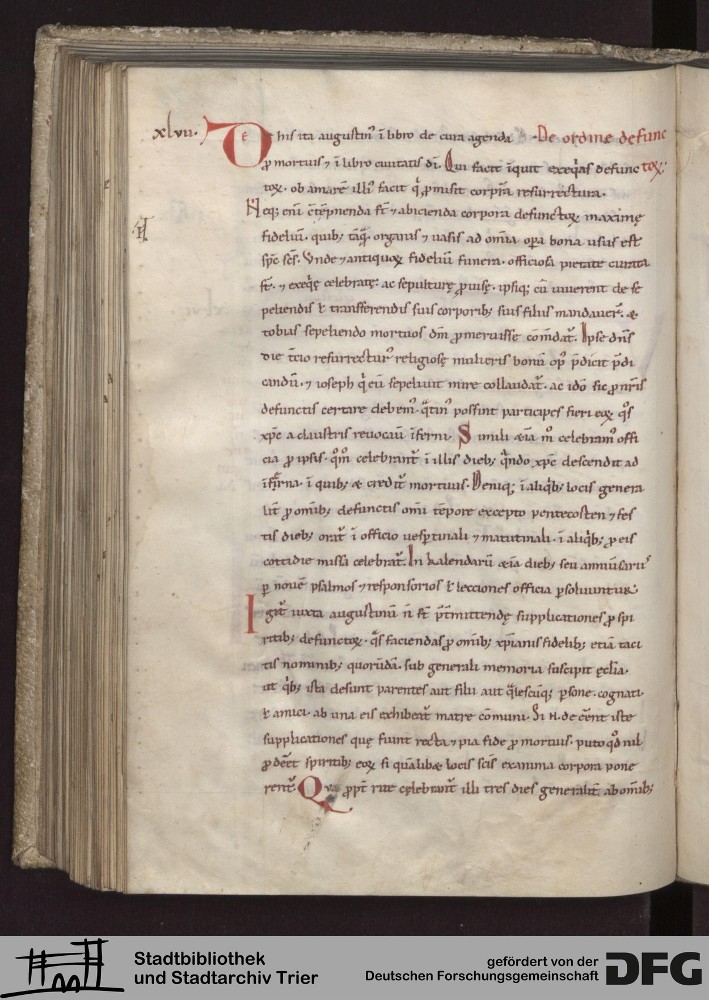 xlvii. DE his ita augustin᷒ ī libro de cura agenda De ordine defunc
ꝓ mortuis ⁊ ī libro ciuitatis dī. Qui facit īquit exeq̄as defunctoꝝ:
toꝝ. ob amorē illi᷒ facit q̇ ꝓmisit corpīa resurrectura.
Neqꝫ enī cōtēpnenda sт̄ ⁊ abicienda corpora defunctoꝝ maxime
fideliū. quibꝫ tāq̄. organis ⁊ uasis ad om̄ia oꝑa bona usus est
sp̄c sc̄s. Vnde ⁊ antiquoꝝ fideliū funera. officiosa pietate curata
sт̄. ⁊ exeq̄ę celebratę: ac sepulturę ꝓuisę. ipsiqꝫ cū uiuerent de se
peliendis ł transferendis suis corporibꝫ suis filiis mandauer̄. &
tobias sepeliendo mortuos dm̄ ꝓmeruisse cōm̄dat᷑. Ipse dn̄s
die t̄cio resurrectur᷒ religiosę mulieris bonū op᷒ p̄dicit p̄di
candū. ⁊ ioseph q̇ eū sepeliuit mire collaudat᷑. ac ido sic ꝓ nr̄is
defunctis certare debem᷒. q̄tin᷒ possint participes fieri eoꝝ q᷒s
xp̄c a claustris reuocauī īferni. Simili &iā m̊ celebram᷒ offi
cia ꝓ ipsis. q̊m̊ celebrant᷑ ī illis diebꝫ. q̄ndo xp̄c descendit ad
īferna. ī quibꝫ & credit᷑ mortuus. Deniqꝫ ī aliq̇bꝫ locis genera
lit̄ ꝓ om̄ibꝫ defunctis omī tēpore excepto pentecosten ⁊ fes
tis diebꝫ orat᷑ ī officio uesꝑtinali ⁊ matutinali. ī aliq̇bꝫ ꝓ eis
cottidie missa celebrat᷑. In kalendarū &iā diebꝫ seu anniuersariis
ꝑ nouē psalmos ⁊ responsorios ł lecciones officia ꝑsoluuntur.
Igit᷑ iuxta augustinū n̄ sт̄ p̄t̄mittendę supplicationes ꝓ spi
ritibꝫ defunctoꝝ. q᷒s faciendas ꝓ om̄ibꝫ xp̄ianis fidelibꝫ etiā taci
tis nominibꝫ quorūdā. sub generali memoria suscipit ęcl̄ia.
ut q̇bꝫ ista desunt parentes aut filii aut q̇lescūqꝫ ꝑsone. cognati.
ł amici. ab una eis exhibeat᷑ matre cōmuni. Si n̄. deēnt iste
supplicationes quę fiunt recta ⁊ pia fide ꝓ mortuis. puto qd̄ nil
ꝓdeēt spiritibꝫ eoꝝ si qualib& locis sc̄is exanima corpora pone
rent᷑. Qua ꝓpt̄ rite cęlebrant᷑ illi tres dies generalit̄ ab om̄ibꝫ
Stadtbibliothek
und Stadtarchiv Trier
gefördert von der
Deutschen Forschungsgemeinschaft
DFG